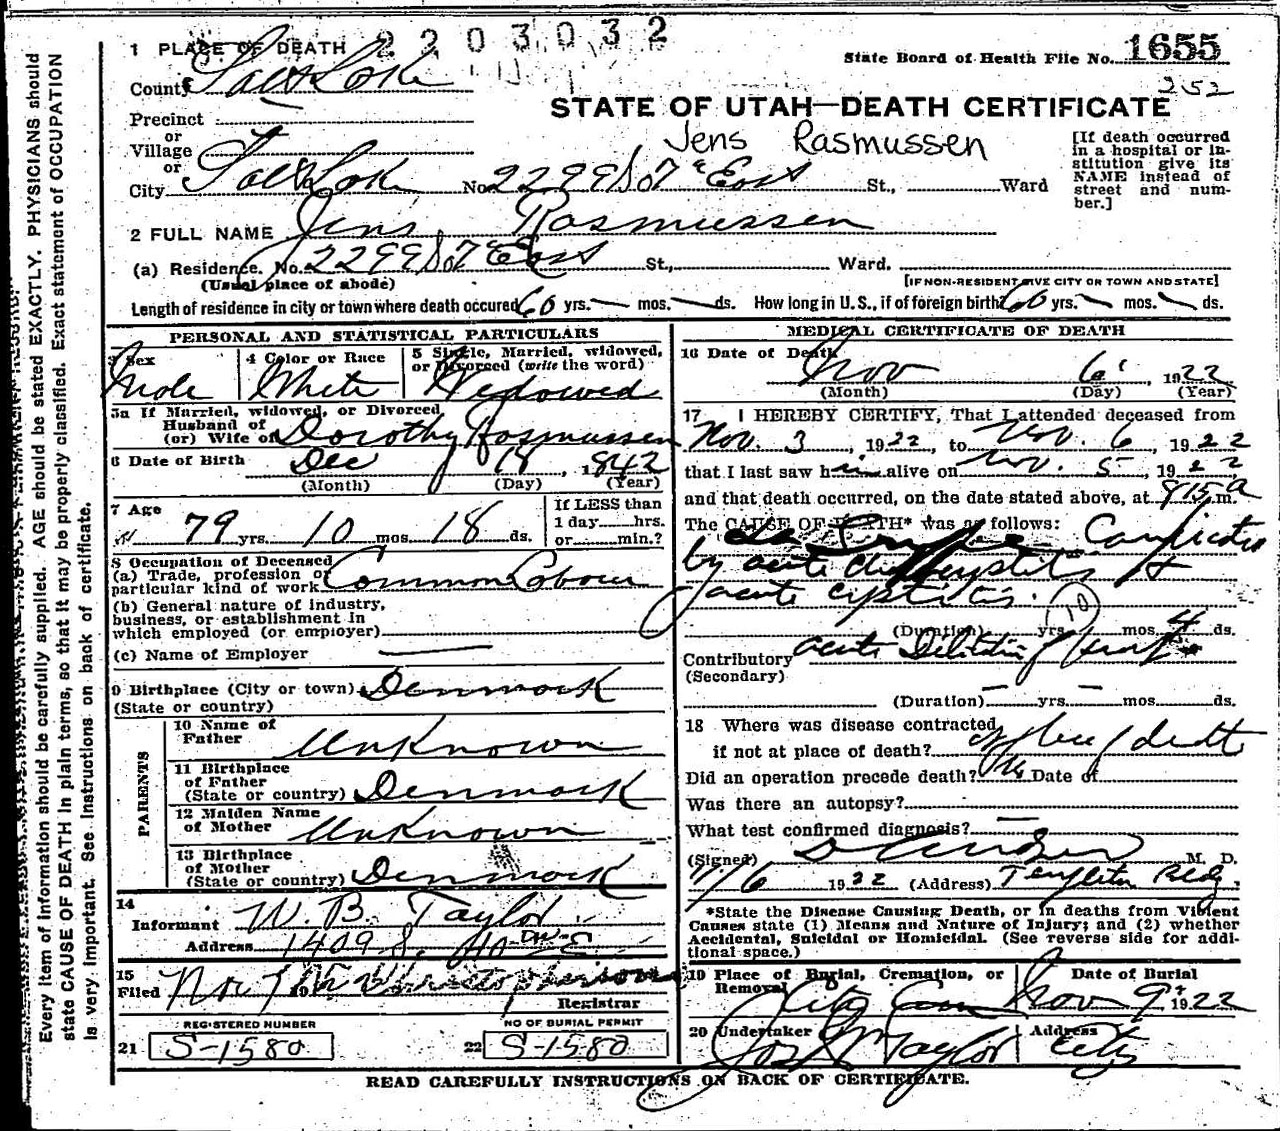 2203032
1 PLACE OF DEATH
State Board of Health File No. 1655
252
County Salt Lake
STATE OF UTAH—DEATH CERTIFICATE
Precinct
or
Village
or
Jens Rasmussen
[If death occurred in a hospital or institution give its NAME instead of street and number.]
City Salt Lake No. 2299 So 7th East St., Ward
2 FULL NAME Jens Rasmussen
(a) Residence. No. 2299 So 7 East St., Ward.
(Usual place of abode) [IF NON-RESIDENT GIVE CITY OR TOWN AND STATE]
Length of residence in city or town where death occured 60 yrs. — mos. — ds. How long in U. S., if of foreign birth? 60 yrs. — mos. — ds.
PERSONAL AND STATISTICAL PARTICULARS
3 Sex
Male
4 Color or Race
White
5 Single, Married, widowed,
or Divorced (write the word)
Widowed
5a If Married, widowed, or Divorced
Husband of
(or) Wife of Dorothy Rasmussen
6 Date of Birth Dec 18, 1842
(Month) (Day) (Year)
7 Age
79 yrs. 10 mos. 18 ds.
If LESS than
1 day hrs.
or min.?
8 Occupation of Deceased
(a) Trade, profession or
particular kind of work Common Labour
(b) General nature of industry,
business, or establishment in
which employed (or employer)
(c) Name of Employer —
9 Birthplace (City or town) Denmark
(State or country)
PARENTS
10 Name of
Father Unknown
11 Birthplace
of Father
(State or country) Denmark
12 Maiden Name
of Mother Unknown
13 Birthplace
of Mother
(State or country) Denmark
14
Informant W. B. Taylor
Address 1409 S.
15
Filed Nov 7
Registrar
REGISTERED NUMBER
21 S-1580
NO OF BURIAL PERMIT
22 S-1580
MEDICAL CERTIFICATE OF DEATH
16 Date of Death
Nov 6, 1922
(Month) (Day) (Year)
17 I HEREBY CERTIFY, That I attended deceased from
Nov. 3, 1922, to Nov. 6, 1922
that I last saw him alive on Nov. 5, 1922
and that death occurred, on the date stated above, at 815 a m.
The CAUSE OF DEATH* was as follows:
La Grippe Complicated
by acute &
acute cystitis.
10
(Duration) yrs. mos. 4 ds.
Contributory acute Dilitation of heart
(Secondary)
(Duration) — yrs. — mos. ds.
18 Where was disease contracted
if not at place of death? of death
Did an operation precede death? No Date of
Was there an autopsy?
What test confirmed diagnosis? —
(Signed) M. D.
11/6 1922 (Address) Templeton Bldg.
*State the Disease Causing Death, or in deaths from Violent
Causes state (1) Means and Nature of Injury; and (2) whether
Accidental, Suicidal or Homicidal. (See reverse side for addi-
tional space.)
19 Place of Burial, Cremation, or
Removal City Cem
Date of Burial
Nov 9th 1922
20 Undertaker
Jos Wm Taylor
Address
City
READ CAREFULLY INSTRUCTIONS ON BACK OF CERTIFICATE.
Every item of information should be carefully supplied. AGE should be stated EXACTLY. PHYSICIANS should
state CAUSE OF DEATH in plain terms, so that it may be properly classified. Exact statement of OCCUPATION
is very important. See instructions on back of certificate.